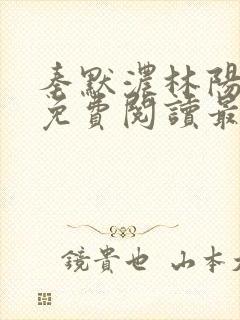 秦默濃林陽
免費閱讀最
鏡貴也 山本